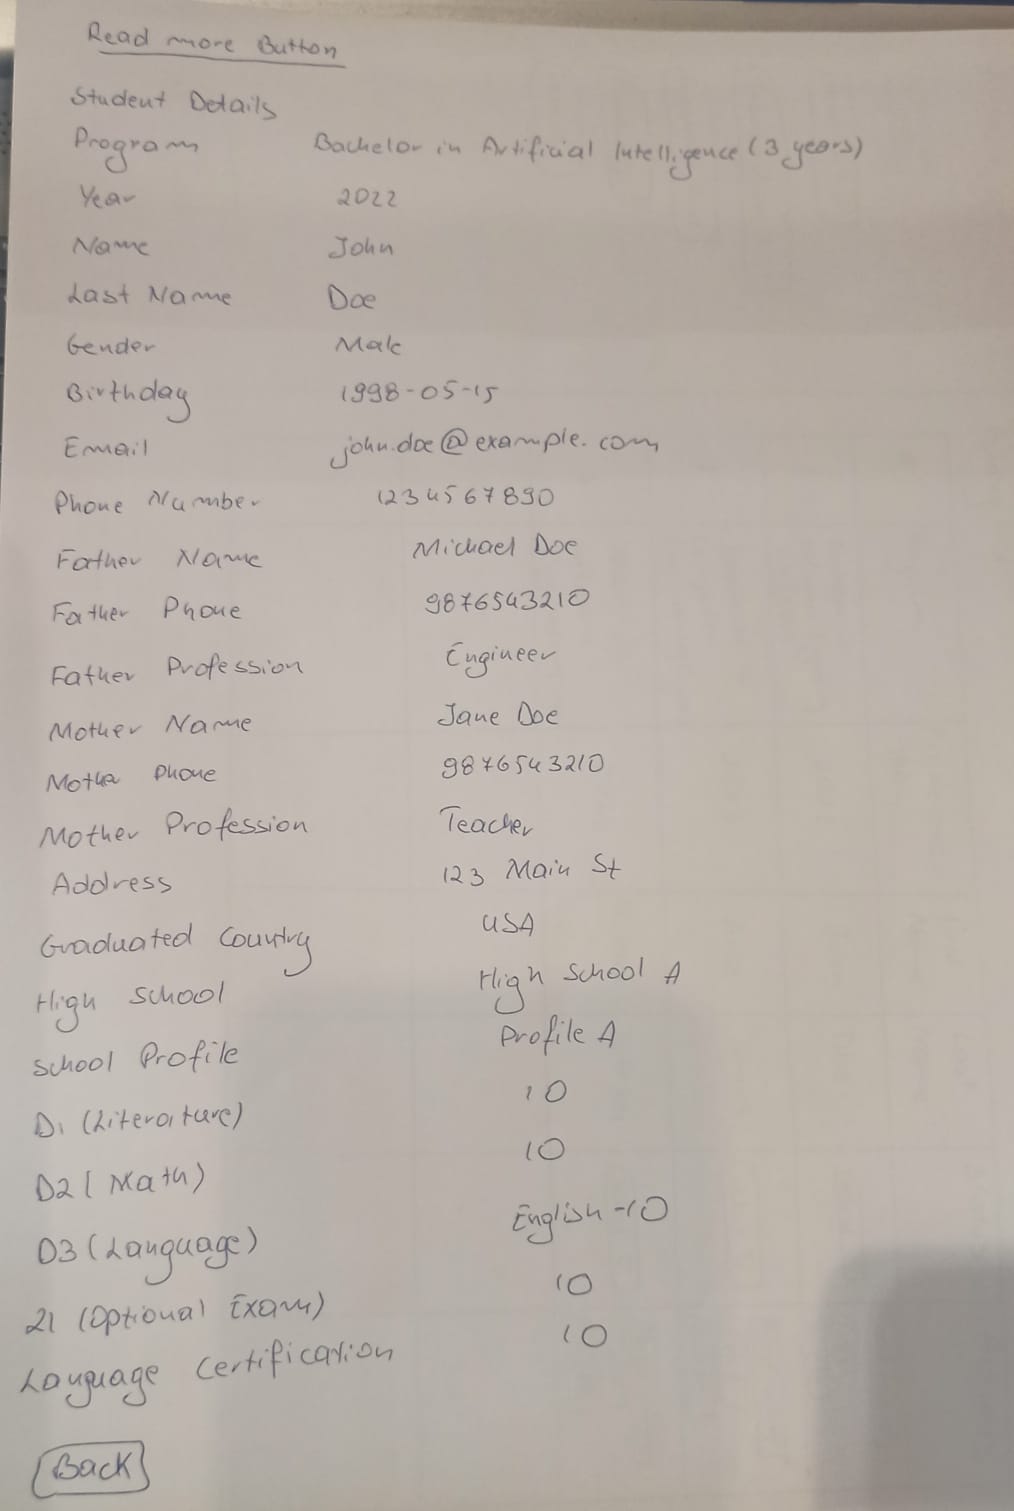 Read more Button
Student Details
Program Bachelor in Artificial Intelligence (3 years)
Year 2022
Name John
Last Name Doe
Gender Male
Birthday 1998-05-15
Email john.doe@example.com
Phone Number 1234567890
Father Name Michael Doe
Father Phone 9876543210
Father Profession Engineer
Mother Name Jane Doe
Mother Phone 9876543210
Mother Profession Teacher
Address 123 Main St
Graduated Country USA
High School High School A
School Profile Profile A
D1 (Literature) 10
D2 (Math) 10
D3 (Language) English-10
Z1 (Optional Exam) 10
Language Certification 10
Back